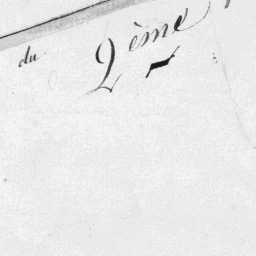 du 2ème